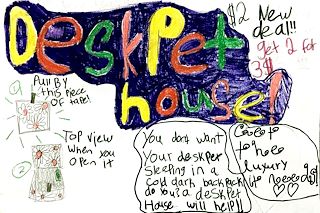 Deskpet
house!
$2 New
deal!!
get 2 for
3$
① Pull By
this piece
of tape!
Top view
when you
open it
②
You dont want
Your deskpet
sleeping in a
cold dark backpack
do you? a deskpet
House will help!!
to the
luxury
it needs